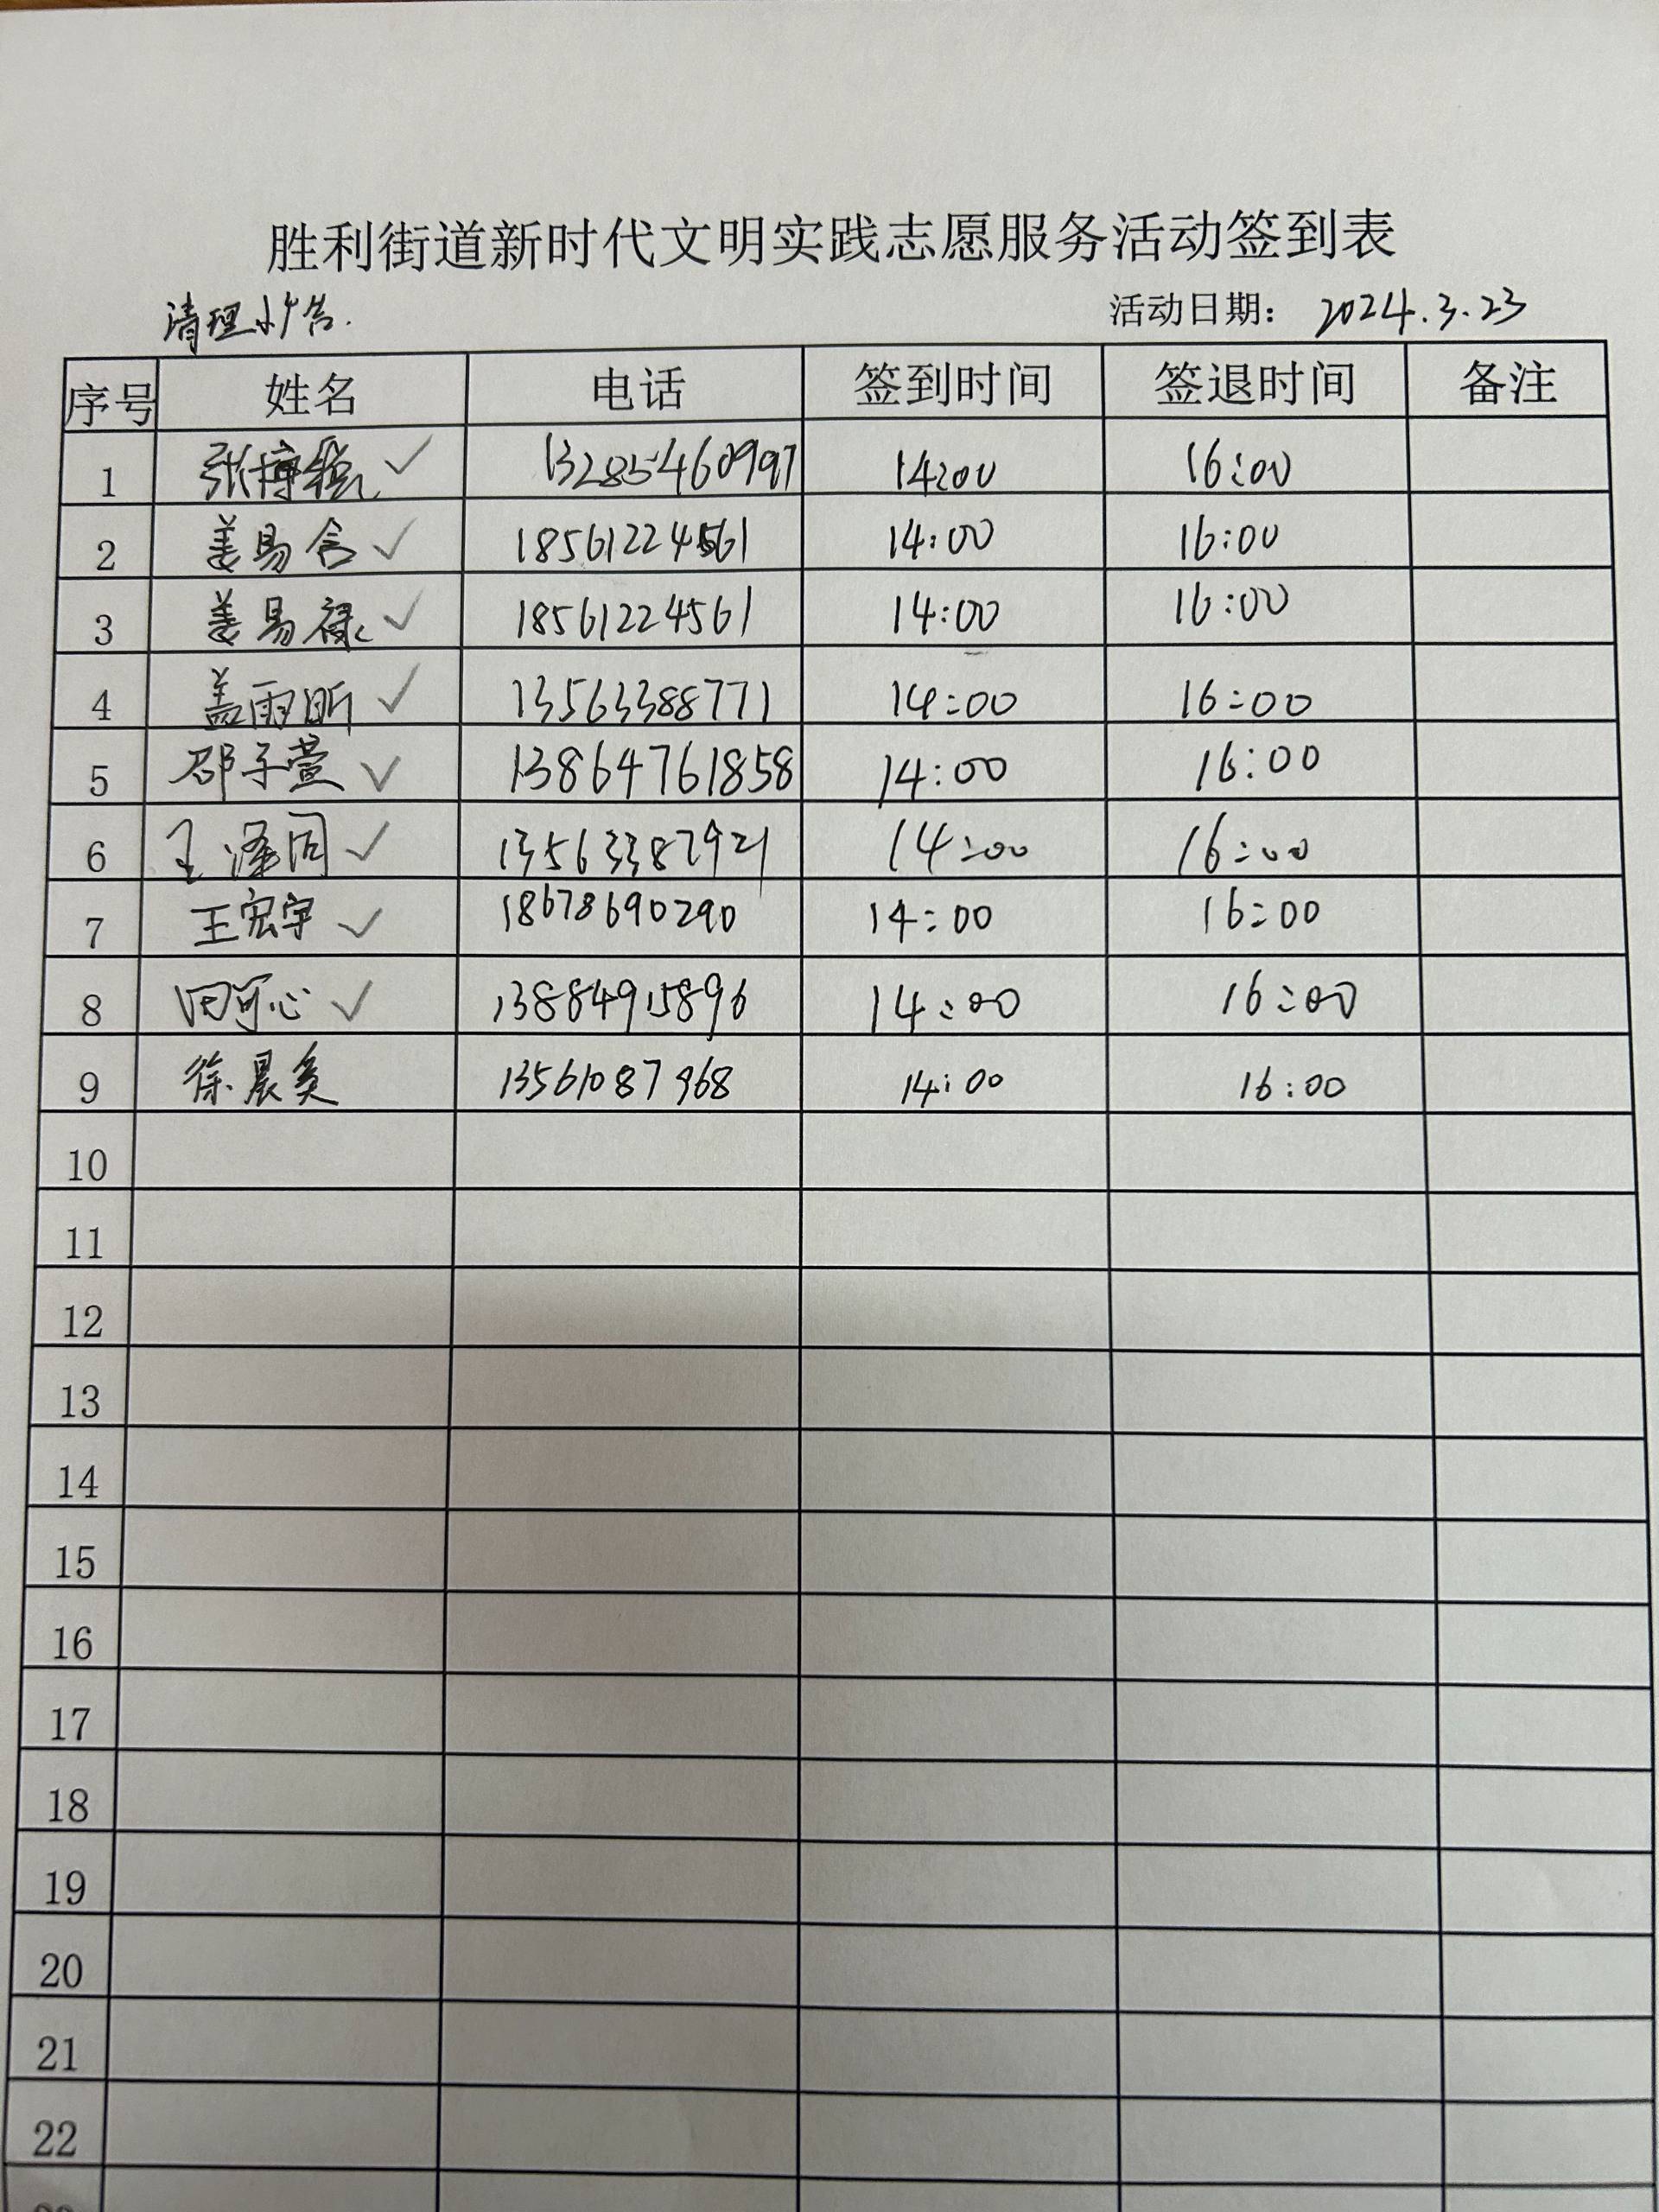 胜利街道新时代文明实践志愿服务活动签到表
清理小广告. 活动日期: 2024.3.23
序号 姓名 电话 签到时间 签退时间 备注
1 张博 ✓ 13285460997 14:00 16:00
2 姜易含 ✓ 18561224561 14:00 16:00
3 姜易禄 ✓ 18561224561 14:00 16:00
4 盖雨昕 ✓ 13563388771 14:00 16:00
5 邵子萱 ✓ 13864761858 14:00 16:00
6 王泽同 ✓ 13563387921 14:00 16:00
7 王宏宇 ✓ 18678690290 14:00 16:00
8 田可心 ✓ 13884915896 14:00 16:00
9 徐晨奂 13561087968 14:00 16:00
10
11
12
13
14
15
16
17
18
19
20
21
22